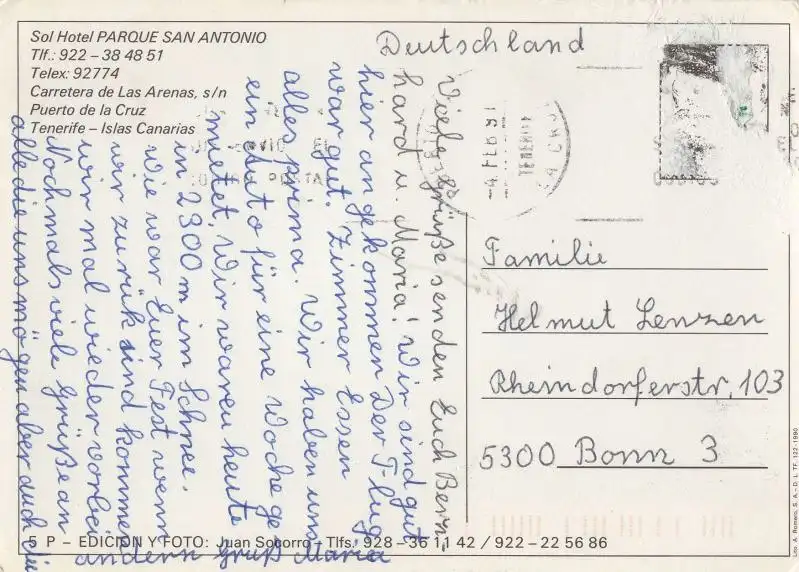 Sol Hotel PARQUE SAN ANTONIO
Tlf.: 922 – 38 48 51
Telex: 92774
Carretera de Las Arenas, s/n
Puerto de la Cruz
Tenerife – Islas Canarias
Deutschland
Viele Grüße senden Euch Bern-
hard u. Maria! Wir sind gut
hier angekommen Der Flug
war gut. Zimmer Essen
alles prima. Wir haben uns
ein Auto für eine Woche ge
mietet. Wir waren heute
in 2300 m im Schnee.
Wie war Euer Fest wenn
wir zurük sind kommen
wir mal wieder vorbei
Nochmals viele Grüße an
alle die uns mögen aber auch die
andern gruß Maria
-4 FEB 91
TENERIFE
Familie
Helmut Lenzen
Rheindorferstr. 103
5300 Bonn 3
5 P – EDICION Y FOTO: Juan Socorro – Tlfs. 928 – 36 11 42 / 922 – 22 56 86
Lito. A. Romero, S. A. - D. L. TF. 122 - 1990